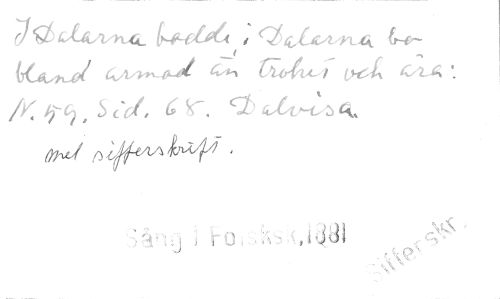 I Dalarna bodde, i Dalarna bo
bland armod än trohet och ära:
N. 59. Sid. 68. Dalvisa.
mel sifferskrift.
Sång i Folksk. 1881
Sifferskr.